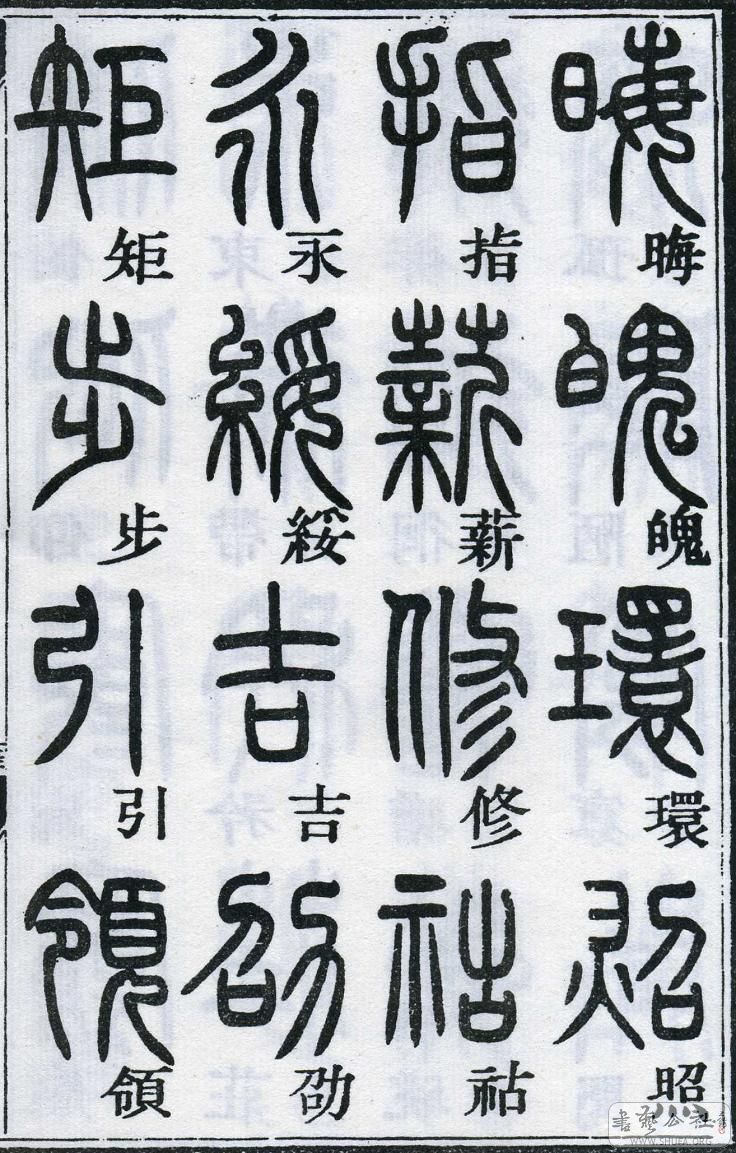 晦魄環照
指薪修祜
永綏吉劭
矩步引領
書藝公社
WWW.SHUFA.ORG